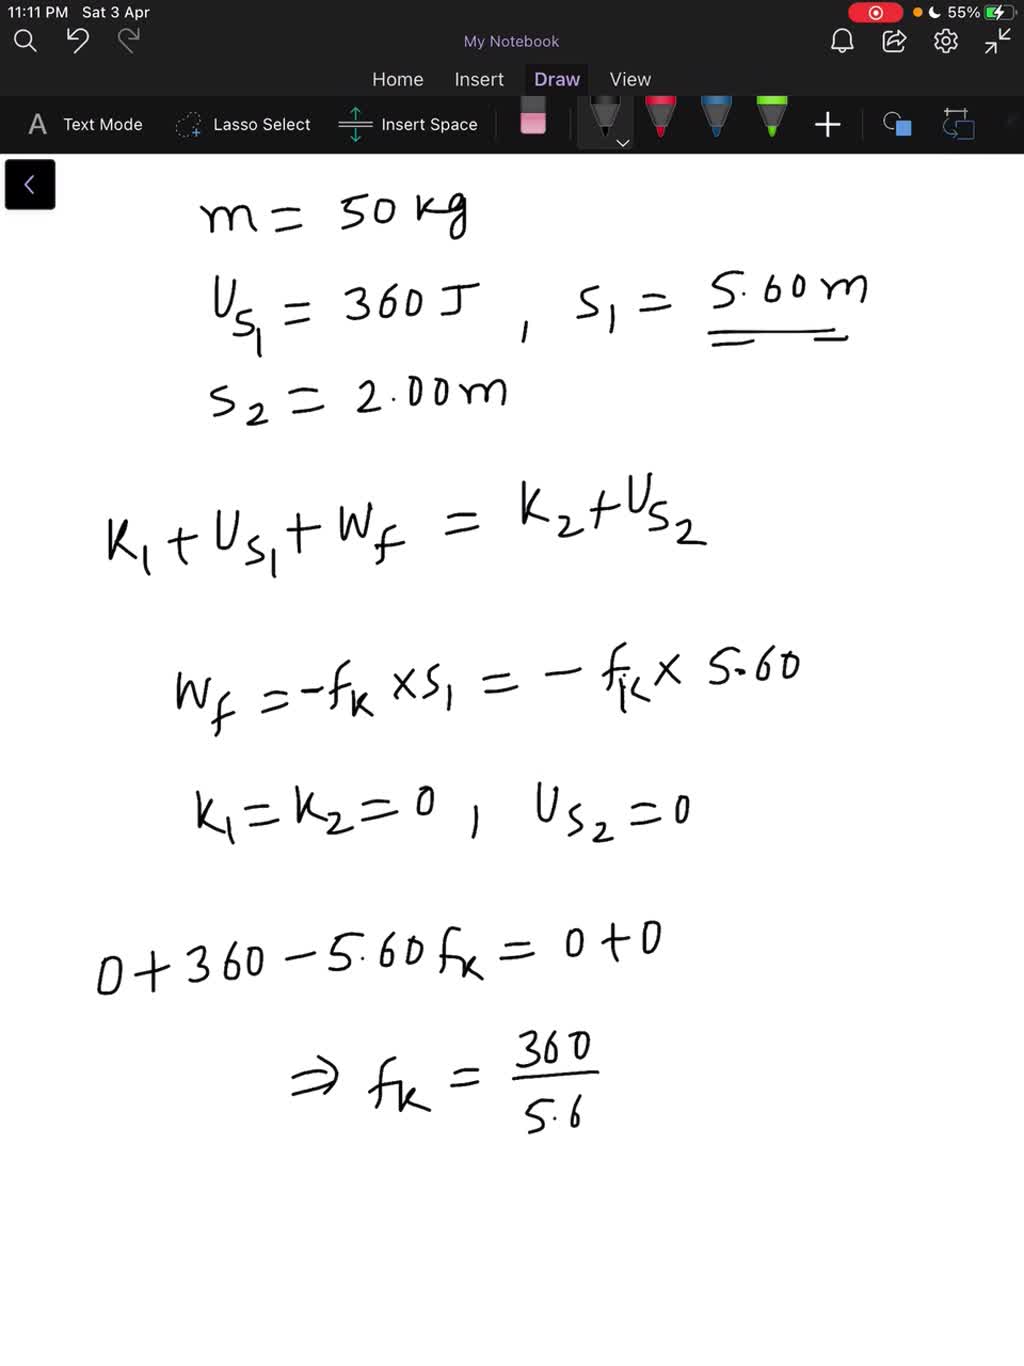 11:11 PM Sat 3 Apr 55%
My Notebook
Home Insert Draw View
A Text Mode Lasso Select Insert Space
m = 50 kg
U_{S_1} = 360 J , S_1 = 5.60 m
S_2 = 2.00 m
K_1 + U_{S_1} + W_f = K_2 + U_{S_2}
W_f = -f_K × S_1 = - f_K × 5.60
K_1 = K_2 = 0 , U_{S_2} = 0
0 + 360 - 5.60 f_K = 0 + 0
⇒ f_K = 360
5.6